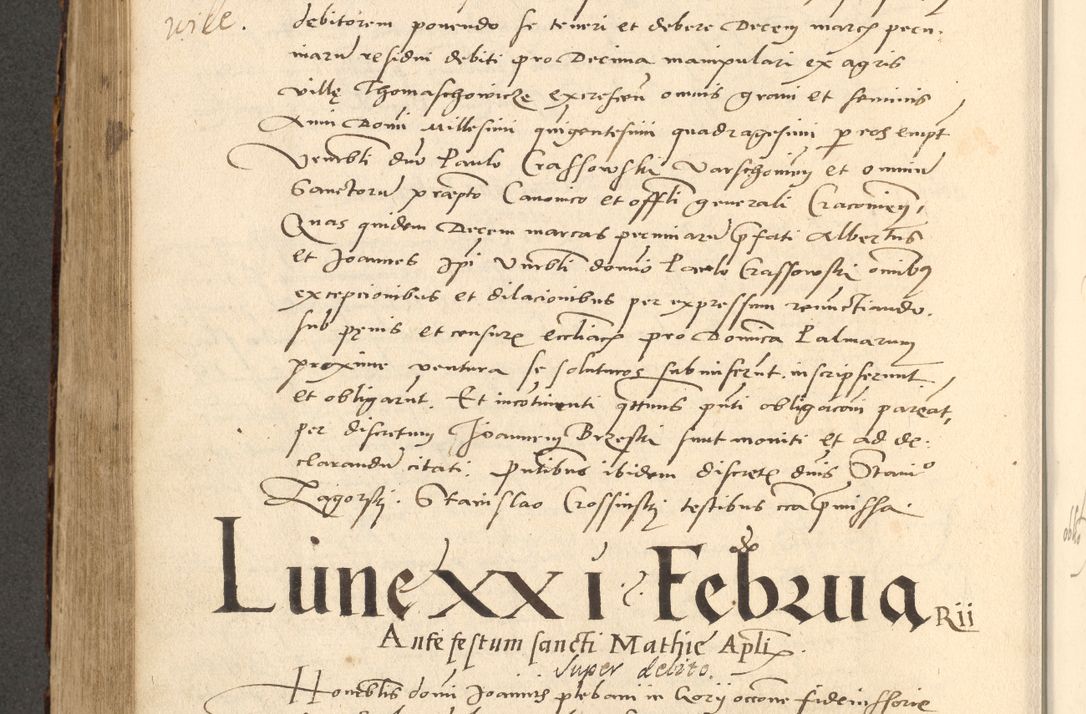 wicl.
debitorem ponendo se teneri et debere Decem march pecu-
niaru residui debiti pro Decima manipulari ex agris
villę Thomaschowicze excrescen omnis grani et seminis
Anni Domi Millesimi quigentesimi quadragesimi p eos empt
Venerbli dno Paulo Crassowski Varschovien et omniu
Sanctoru præpto Canonico et offli generali Cracovien,
Quas quidem Decem marcas pecuniaru pfati Albertus
et Joannes Ipi Vnrbli domio Paulo Crassowski omibq
excepcionibus et dilacionibus per expressum renunctiando.
sub pęnis et censure eccliach pro Domica Palmarum
proxime ventura se soluturos subinserunt. inscripserunt
et obligarut. Et incotinenti qttnus pnti obligaconi pareat,
per discretum Joannem Brzeski sunt moniti et ad de-
clarandu citati. pntibus ibidem discret dnis Stanio
Zagorski. Stanislao Crossinski testibus cca pmissa
Lunę XXI Februa Rii
Ante festum sancti Mathię Apli.
Super debito.
Honorblis domi Joannis plebani in Gorii occone fideiussorie